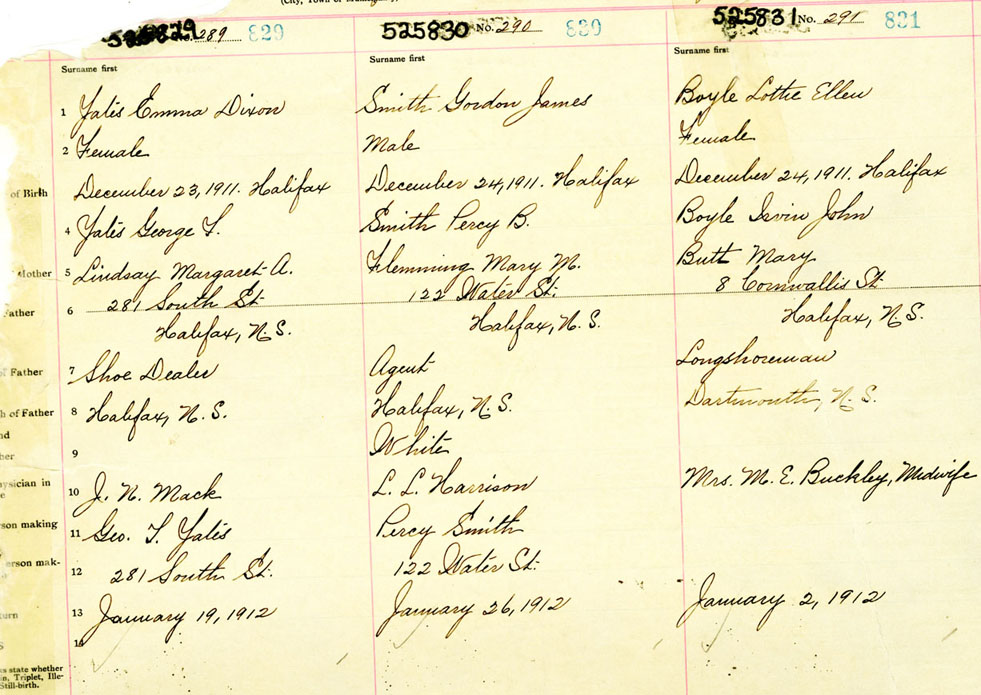 (City, Town or
525829 No. 289 829
525830 No. 290 830
525831 No. 291 831
Surname first
Surname first
Surname first
1 Yates Emma Dixon
Smith Gordon James
Boyle Lottie Ellen
2 Female
Male
Female
of Birth
December 23, 1911. Halifax
December 24, 1911. Halifax
December 24, 1911. Halifax
4 Yates George T.
Smith Percy B.
Boyle Irvin John
Mother 5 Lindsay Margaret A.
Flemming Mary M.
Butt Mary
Father 6 281 South St.
122 Water St.
8 Cornwallis St.
Halifax, N.S.
Halifax, N.S.
Halifax, N.S.
of Father 7 Shoe Dealer
Agent
Longshoreman
h of Father 8 Halifax, N.S.
Halifax, N.S.
Dartmouth, N.S.
nd
her 9
White
hysician in
e 10 J. N. Mack
L. L. Harrison
Mrs. M. E. Buckley, Midwife
son making 11 Geo. T. Yates
Percy Smith
erson mak- 12 281 South St.
122 Water St.
turn 13 January 19, 1912
January 26, 1912
January 2, 1912
S 14
s state whether
in, Triplet, Ille-
Still-birth.